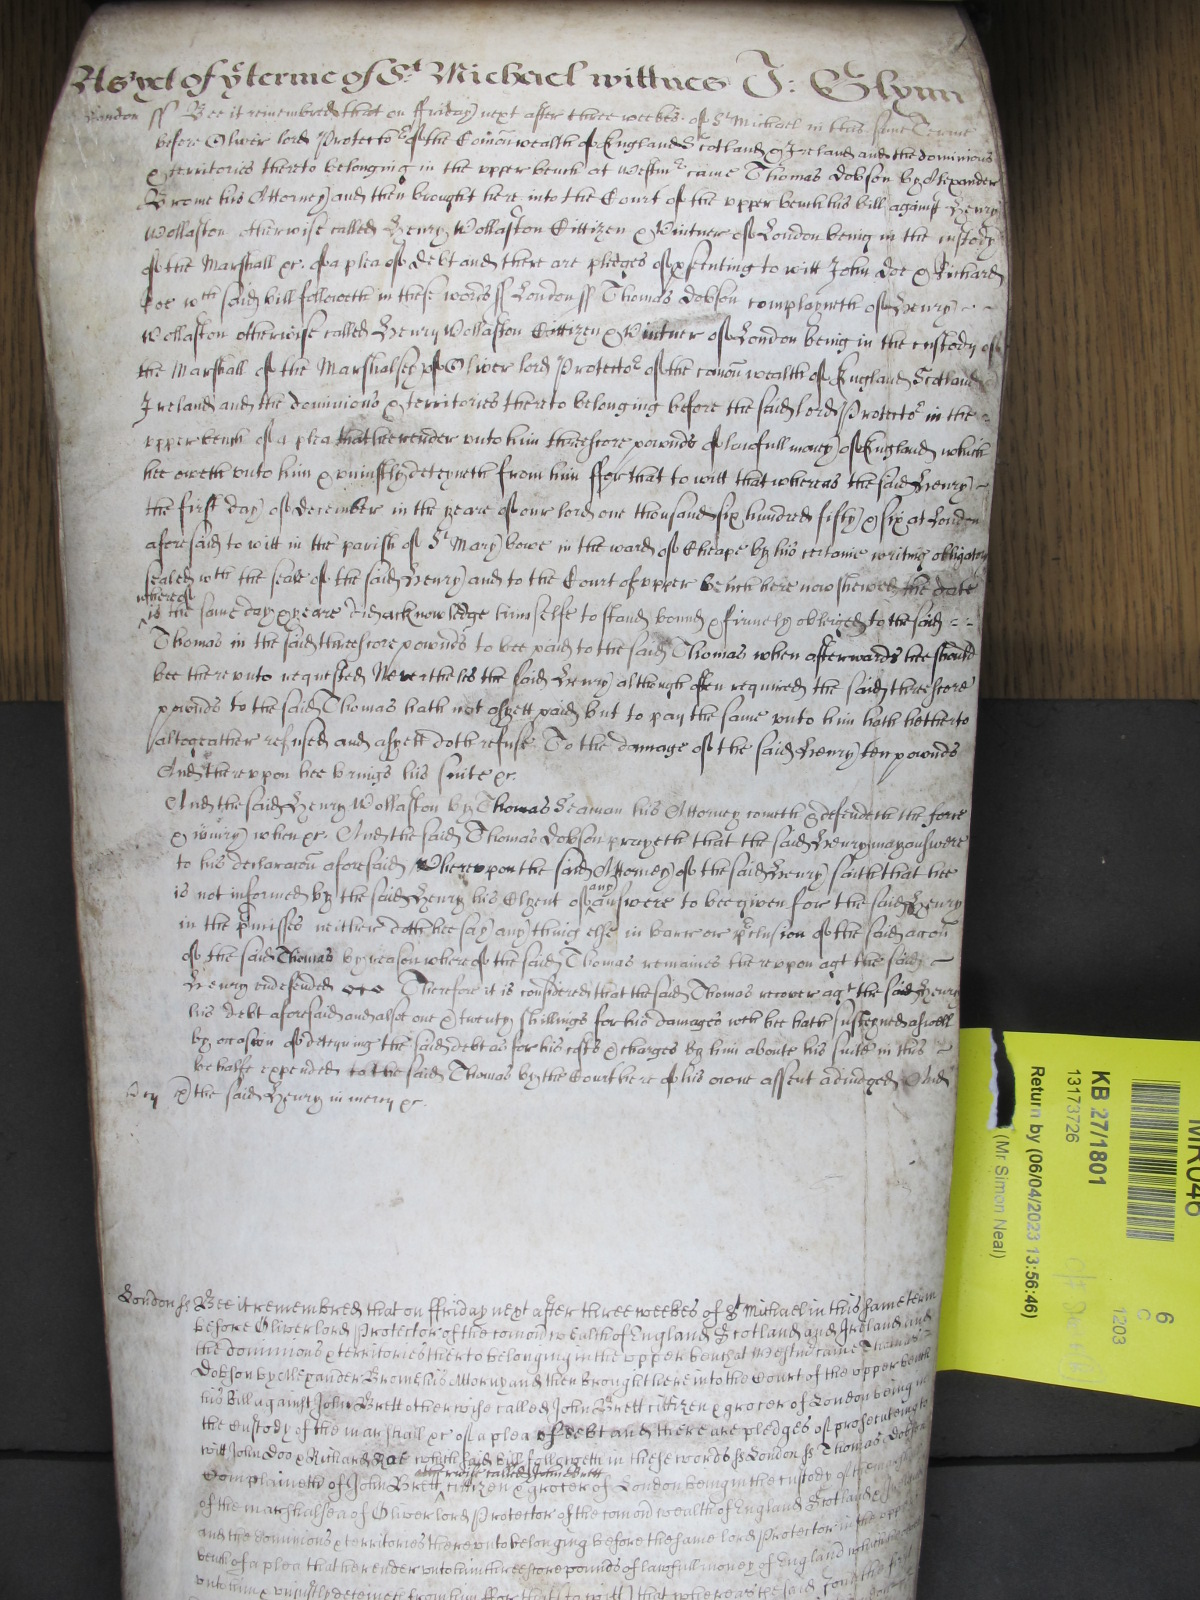 As yet of ye terme of St Michael wittnes J: Glynn
London ss Bee it remembred that on ffriday next after three weekes of St Michael in this same Terme
before Oliver lord Protector of the Comonwealth of England Scotland & Ireland and the dominions
& territories thereto belonging in the upper bench at Westmr came Thomas Dobson by Alexander
Brome his Attorney and then brought here into the Court of the upper bench his bill against Henry
Wollaston otherwise called Henry Wollaston Cittizen & Vintner of London being in the custody
of the Marshall &c. of a plea of debt and there are pledges of p'secuting to witt John Doe & Richard
Roe wch said bill followeth in these words ss London ss Thomas Dobson complayneth of Henry
Wollaston otherwise called Henry Wollaston Cittizen & Vintner of London being in the custody of
the Marshall of the Marshalsey of Oliver lord Protector of the comon wealth of England Scotland
Ireland and the dominions & territories thereto belonging before the said lord Protector in the
upper bench of a plea that hee render unto him threescore pownds of lawfull money of England which
hee oweth unto him & uniustly deteyneth from him ffor that to witt that whereas the said Henry
the first day of December in the yeare of our lord one thousand six hundred fifty & six at London
aforesaid to witt in the parish of St Mary bowe in the ward of Cheape by his certaine writing obligatory
sealed wth the seale of the said Henry and to the Court of upper bench here now shewed the date
whereof
is the same day & yeare did acknowledge himselfe to stand bound & firmely obleiged to the said
Thomas in the said threescore pownds to bee paid to the said Thomas when afterwards hee should
bee thereunto requested Neverthelés the said Henry although often required the said threescore
pownds to the said Thomas hath not as yett paid but to pay the same unto him hath hetherto
altogeather refused and as yett doth refuse To the damage of the said Henry ten pownds
And thereupon hee brings his suite &c.
And the said Henry Wollaston by Thomas Seaman his Attorney cometh & defendeth the force
& iniury when &c. And the said Thomas Dobson prayeth that the said Henry may answere
to his declaracon aforesaid Whereupon the said Attorney of the said Henry saith that hee
is not informed by the said Henry his Clyent of any answere to bee given for the said Henry
in the p'misses neither doth hee say any thing else in barre or p'clusion of the said accon
of the said Thomas by reason whereof the said Thomas remaines thereupon agt the said
Henry undefended Therefore it is considered that the said Thomas recover agt the said Henry
his debt aforesaid and also one & twenty shillings for his damages wch hee hath susteyned aswell
by occasion of deteyning the said debt as for his costs & charges by him aboute his suite in this
behalfe expended to the said Thomas by the Court here of his owne assent adiudged And
mcy the said Henry in mercy &c.
London ss Bee it remembred that on ffriday next after three weekes of St Michael in this same term
before Oliver lord Protector of the comon wealth of England Scotland and Ireland and
the dominions & territories therto belonging in the upper bench at Westmr came Thomas
Dobson by Alexander Brome his Attorny and then brought here into the Court of the upper bench
his bill against John Brett otherwise called John Brett cittizen & grocer of London being in
the custody of the marshall &c of a plea of debt and there are pledges of prosecuteing to
witt John Doo & Richard Roe which said bill followeth in these words ss London ss Thomas Dobson
otherwise called John Brett
Complaineth of John Brett cittizen & grocer of London being in the custody of the marshall
of the marshalsea of Oliver lord Protector of the comon wealth of England Scotland & Ireland
and the dominions & territories thereunto belonging before the same lord Protector in the upper
bench of a plea that he render unto him threescore pounds of lawfull money of England which
unto him & uniustly deteineth from him ffor that (to witt) that whereas the said John the first
MR046
6
C
1203
KB 27/1801
13173726
Return by (06/04/2023 13:56:46)
(Mr Simon Neal)